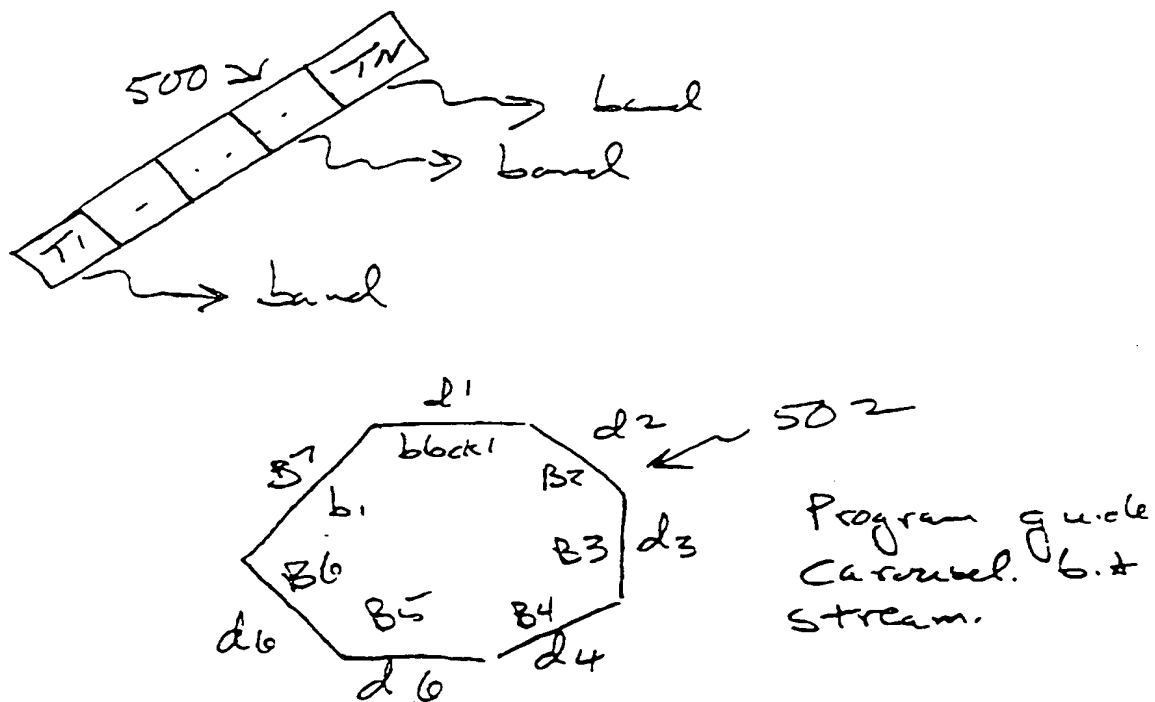 500
TN
band
band
T1
band
d1
block1
d2
502
B7
b1
B2
B3 d3
B6
B5
B4
d6
d4
d6
Program guide
Carousel. bit
stream.